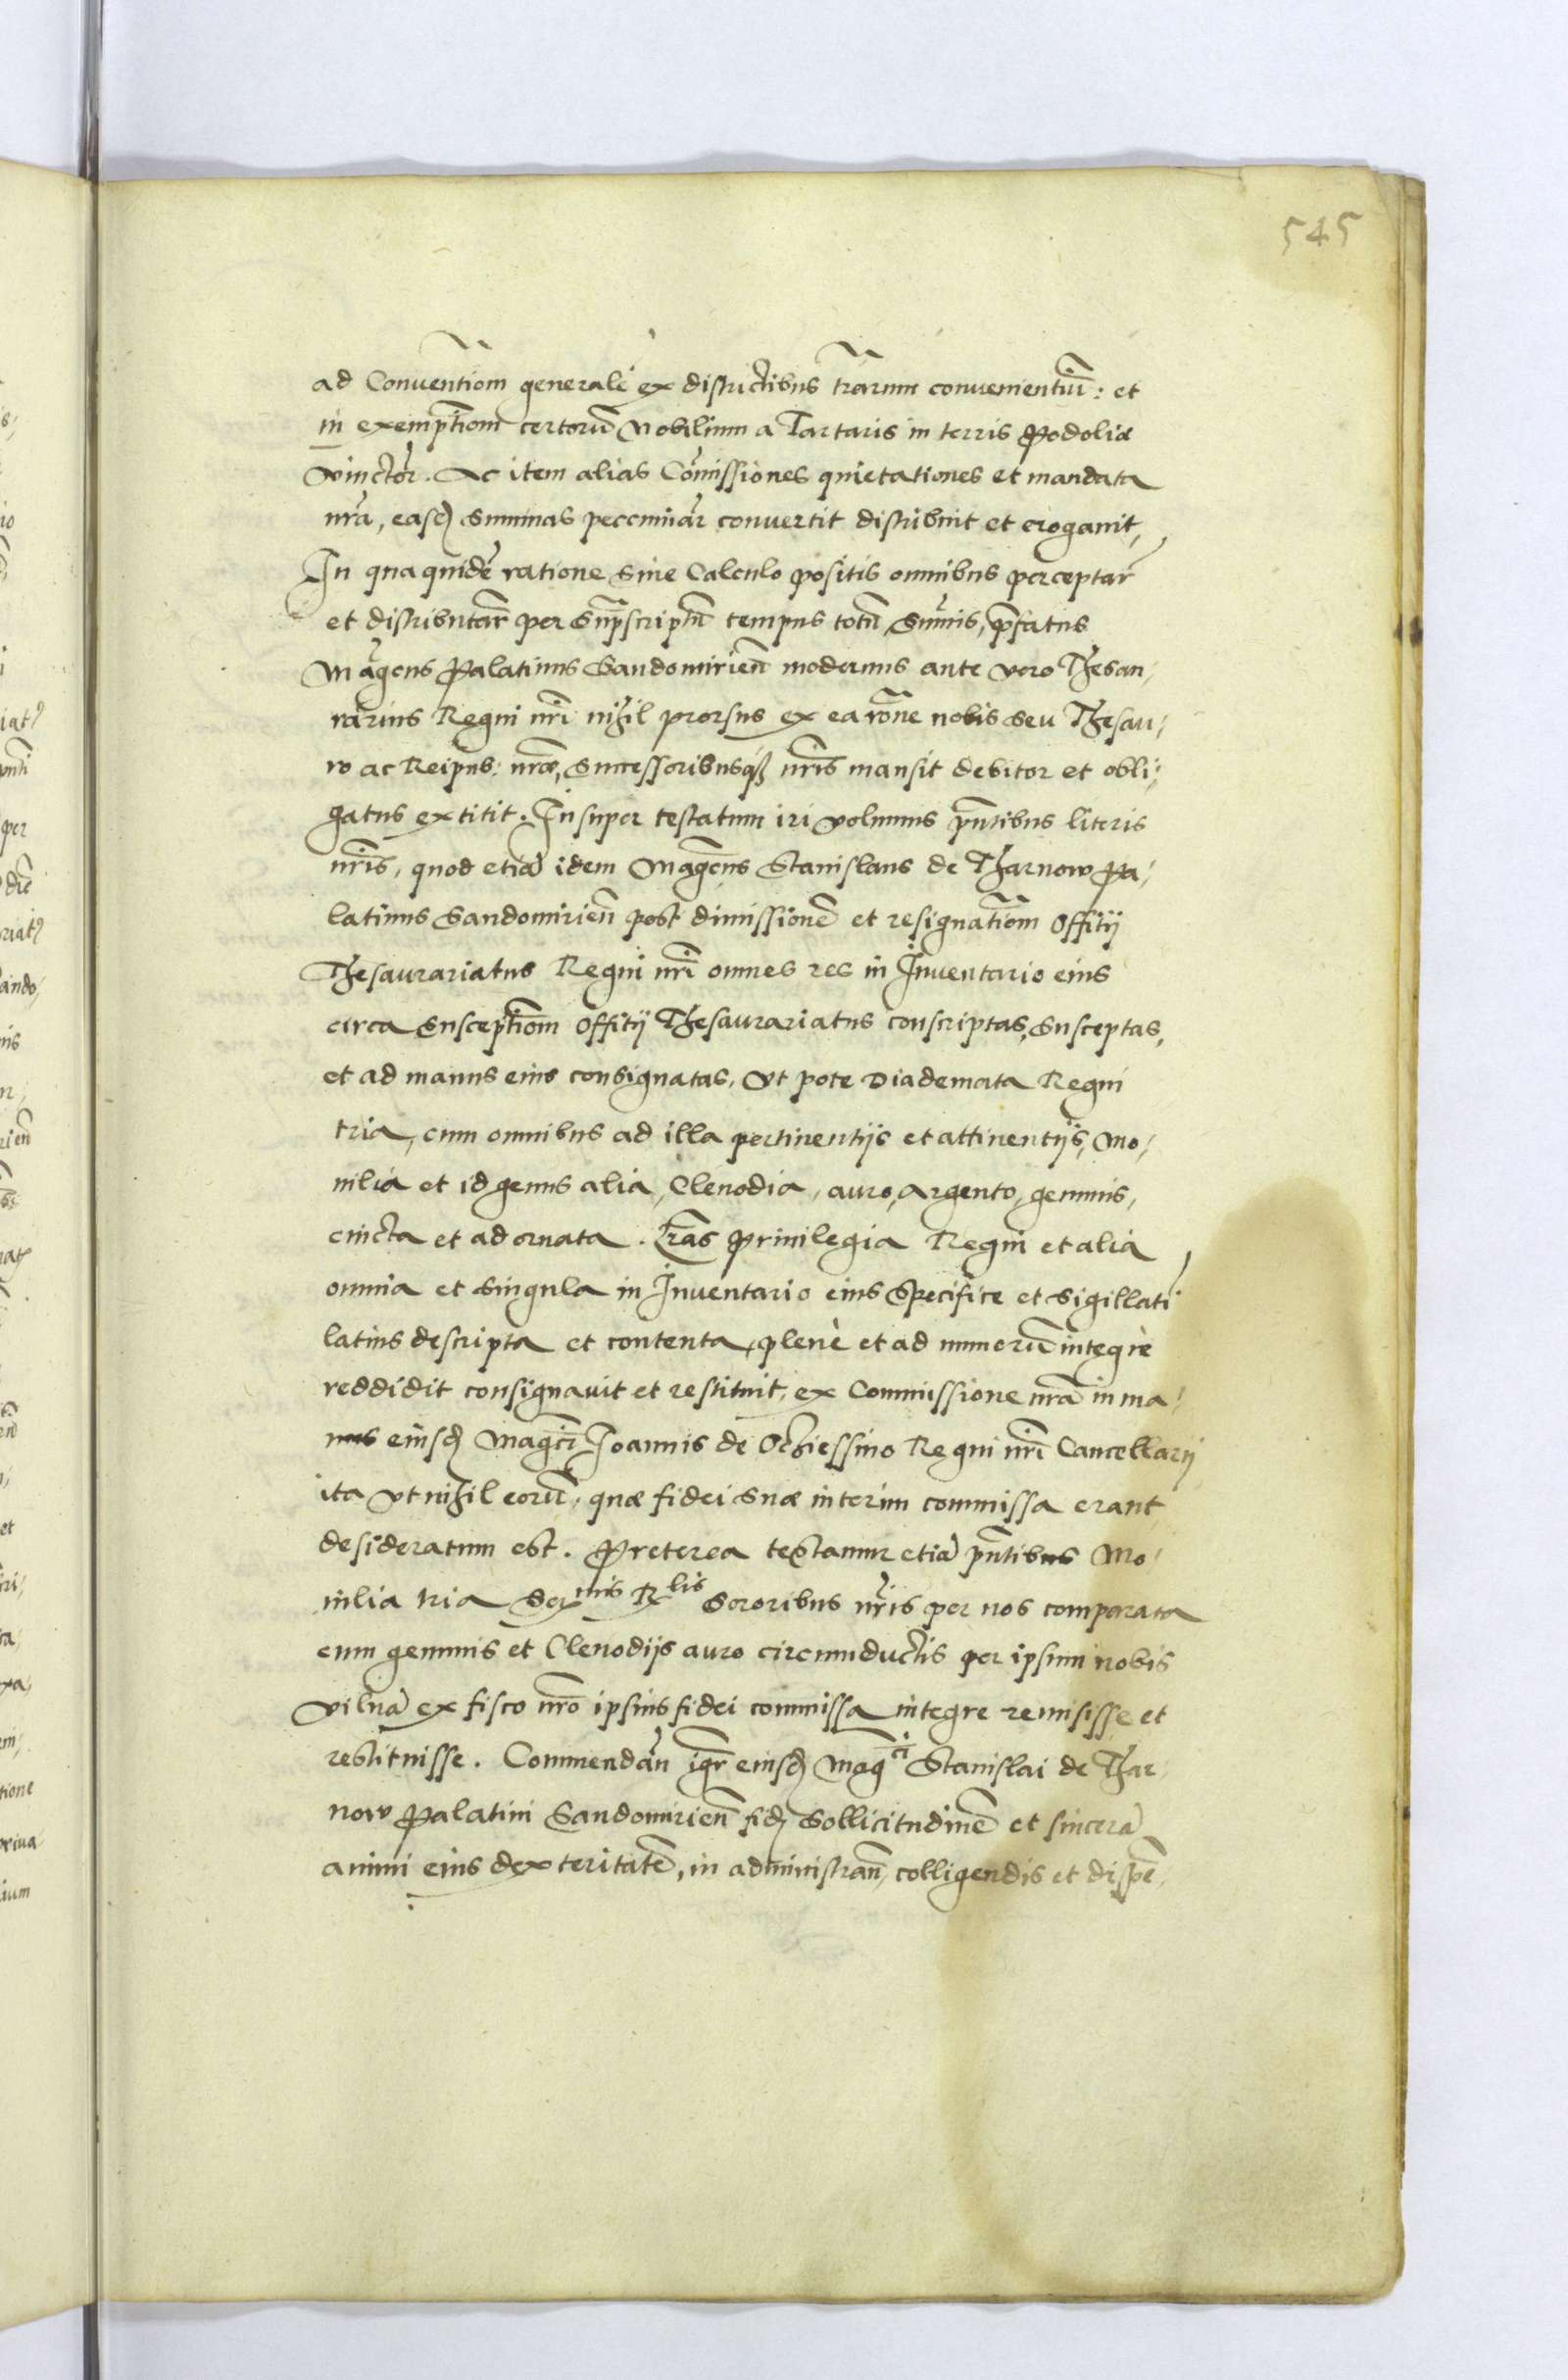 545
ad Conuentiom generalē ex districtibus trarum conuenientiū: et
in exemptiom certorū Nobilium a Tartaris in terris Podoliæ
vinctor. Ac item alias Comissiones quietationes et mandata
nra, easd summas peccuniar conuertit distribuit et erogauit,
In qua quidē ratione siue Calculo positis omnibus perceptar
et distributar per suprascriptū tempus totū, sumis, pfatus
Magcus Palatinus Sandomirien modernus ante vero Thesau¬
rarius Regni nri nihil prorsus ex ea rone nobis seu Thesau¬
ro ac Reipub: nræ, successoribusq nris mansit debitor et obli¬
gatus extitit. Insuper testatum iri volumus pntibus literis
nris, quod etiā idem Magcus Stanislaus de Tharnow Pa¬
latinus Sandomirien post dimissionē et resignatiom Offitij
Thesaurariatus Regni nri omnes res in Inuentario eius
circa susceptiom Offitij Thesaurariatus conscriptas, susceptas,
et ad manus eius consignatas, vt pote Diademata Regni
tria, cum omnibus ad illa pertinentijs et attinentijs, mo¬
nilia et id genus alia, Clenodia, auro, argento, gemmis,
cincta et adornata. Lras Priuilegia Regni et alia
omnia et singula in Inuentario eius specifice et sigillati
latius descripta et contenta, plenè et ad numerū integrè
reddidit consignauit et restituit, ex Commissione nra in ma¬
nus eiusd Magci Joannis de Ochiessino Regni nri Cancellarij
ita vt nihil eorū, quæ fidei suæ interim commissa erant
desideratum est. Preterea testamur etiā pntibus Mo¬
nilia tria Sermis Rlis sororibus nris per nos comparata
cum gemmis et Clenodijs auro circumductis per ipsum nobis
Vilnā ex fisco nro ipsius fidei commissa integre remisisse et
restituisse. Commendan igr eiusd Magci Stanislai de Thar¬
now Palatini Sandomirien fid sollicitudinē et sincerā
animi eius dexteritatē, in administran, colligendis et dispē¬